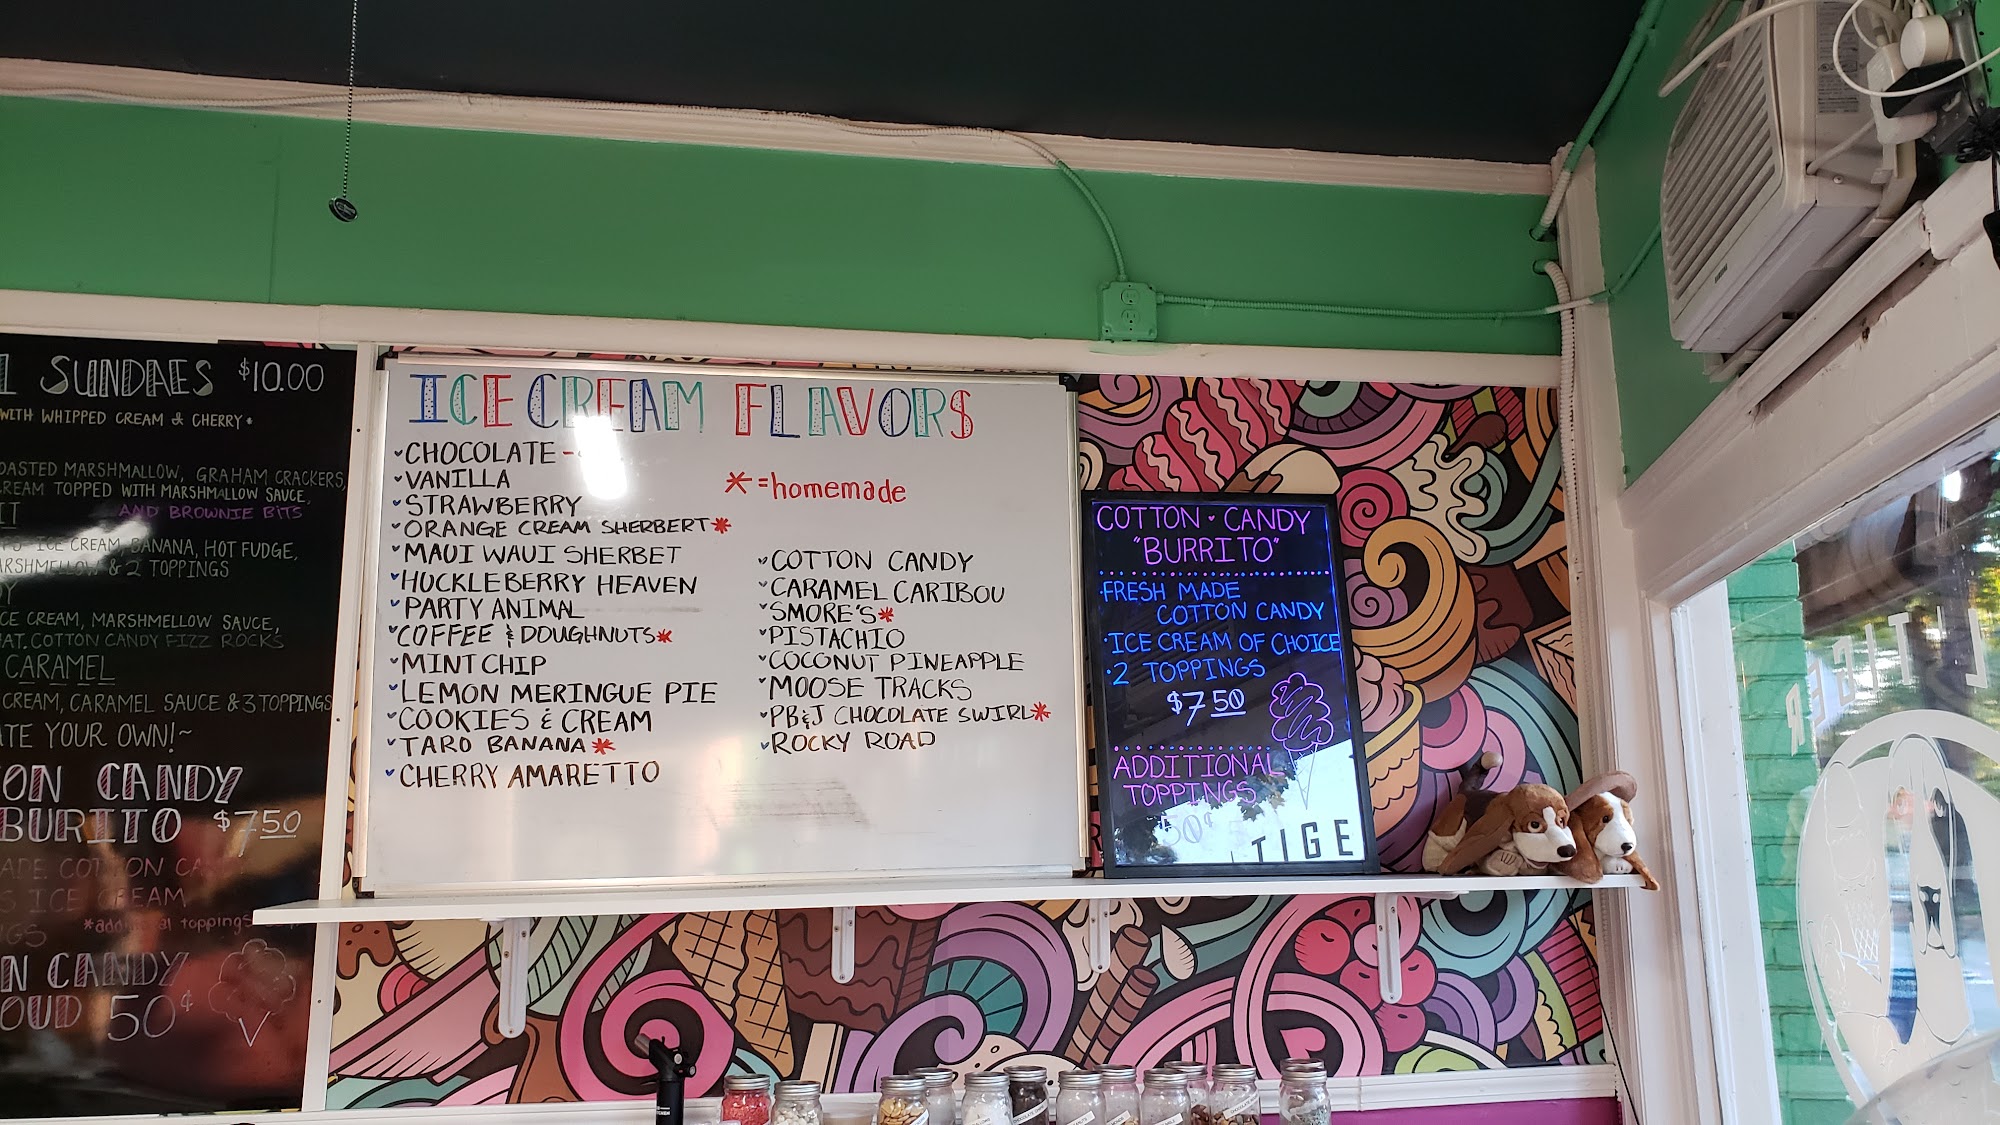 SUNDAES $10.00
WITH WHIPPED CREAM & CHERRY
MARSHMALLOW, GRAHAM CRACKERS,
CREAM TOPPED WITH MARSHMALLOW SAUCE,
AND BROWNIE BITS
ICE CREAM, BANANA, HOT FUDGE,
& 2 TOPPINGS
ICE CREAM, MARSHMELLOW SAUCE,
COTTON CANDY FIZZ ROCKS
CARAMEL
CREAM, CARAMEL SAUCE & 3 TOPPINGS
YOUR OWN!~
CANDY
BURRITO $7 50
ICE CREAM
*additional toppings
CANDY
50¢
ICE CREAM FLAVORS
CHOCOLATE -
VANILLA
STRAWBERRY
ORANGE CREAM SHERBERT*
MAUI WAUI SHERBET
HUCKLEBERRY HEAVEN
PARTY ANIMAL
COFFEE & DOUGHNUTS*
MINT CHIP
LEMON MERINGUE PIE
COOKIES & CREAM
TARO BANANA*
CHERRY AMARETTO
* = homemade
COTTON CANDY
CARAMEL CARIBOU
SMORE'S*
PISTACHIO
COCONUT PINEAPPLE
MOOSE TRACKS
PB&J CHOCOLATE SWIRL*
ROCKY ROAD
COTTON CANDY
"BURRITO"
FRESH MADE
COTTON CANDY
ICE CREAM OF CHOICE
2 TOPPINGS
$7 50
ADDITIONAL
TOPPINGS
50¢
TIGE